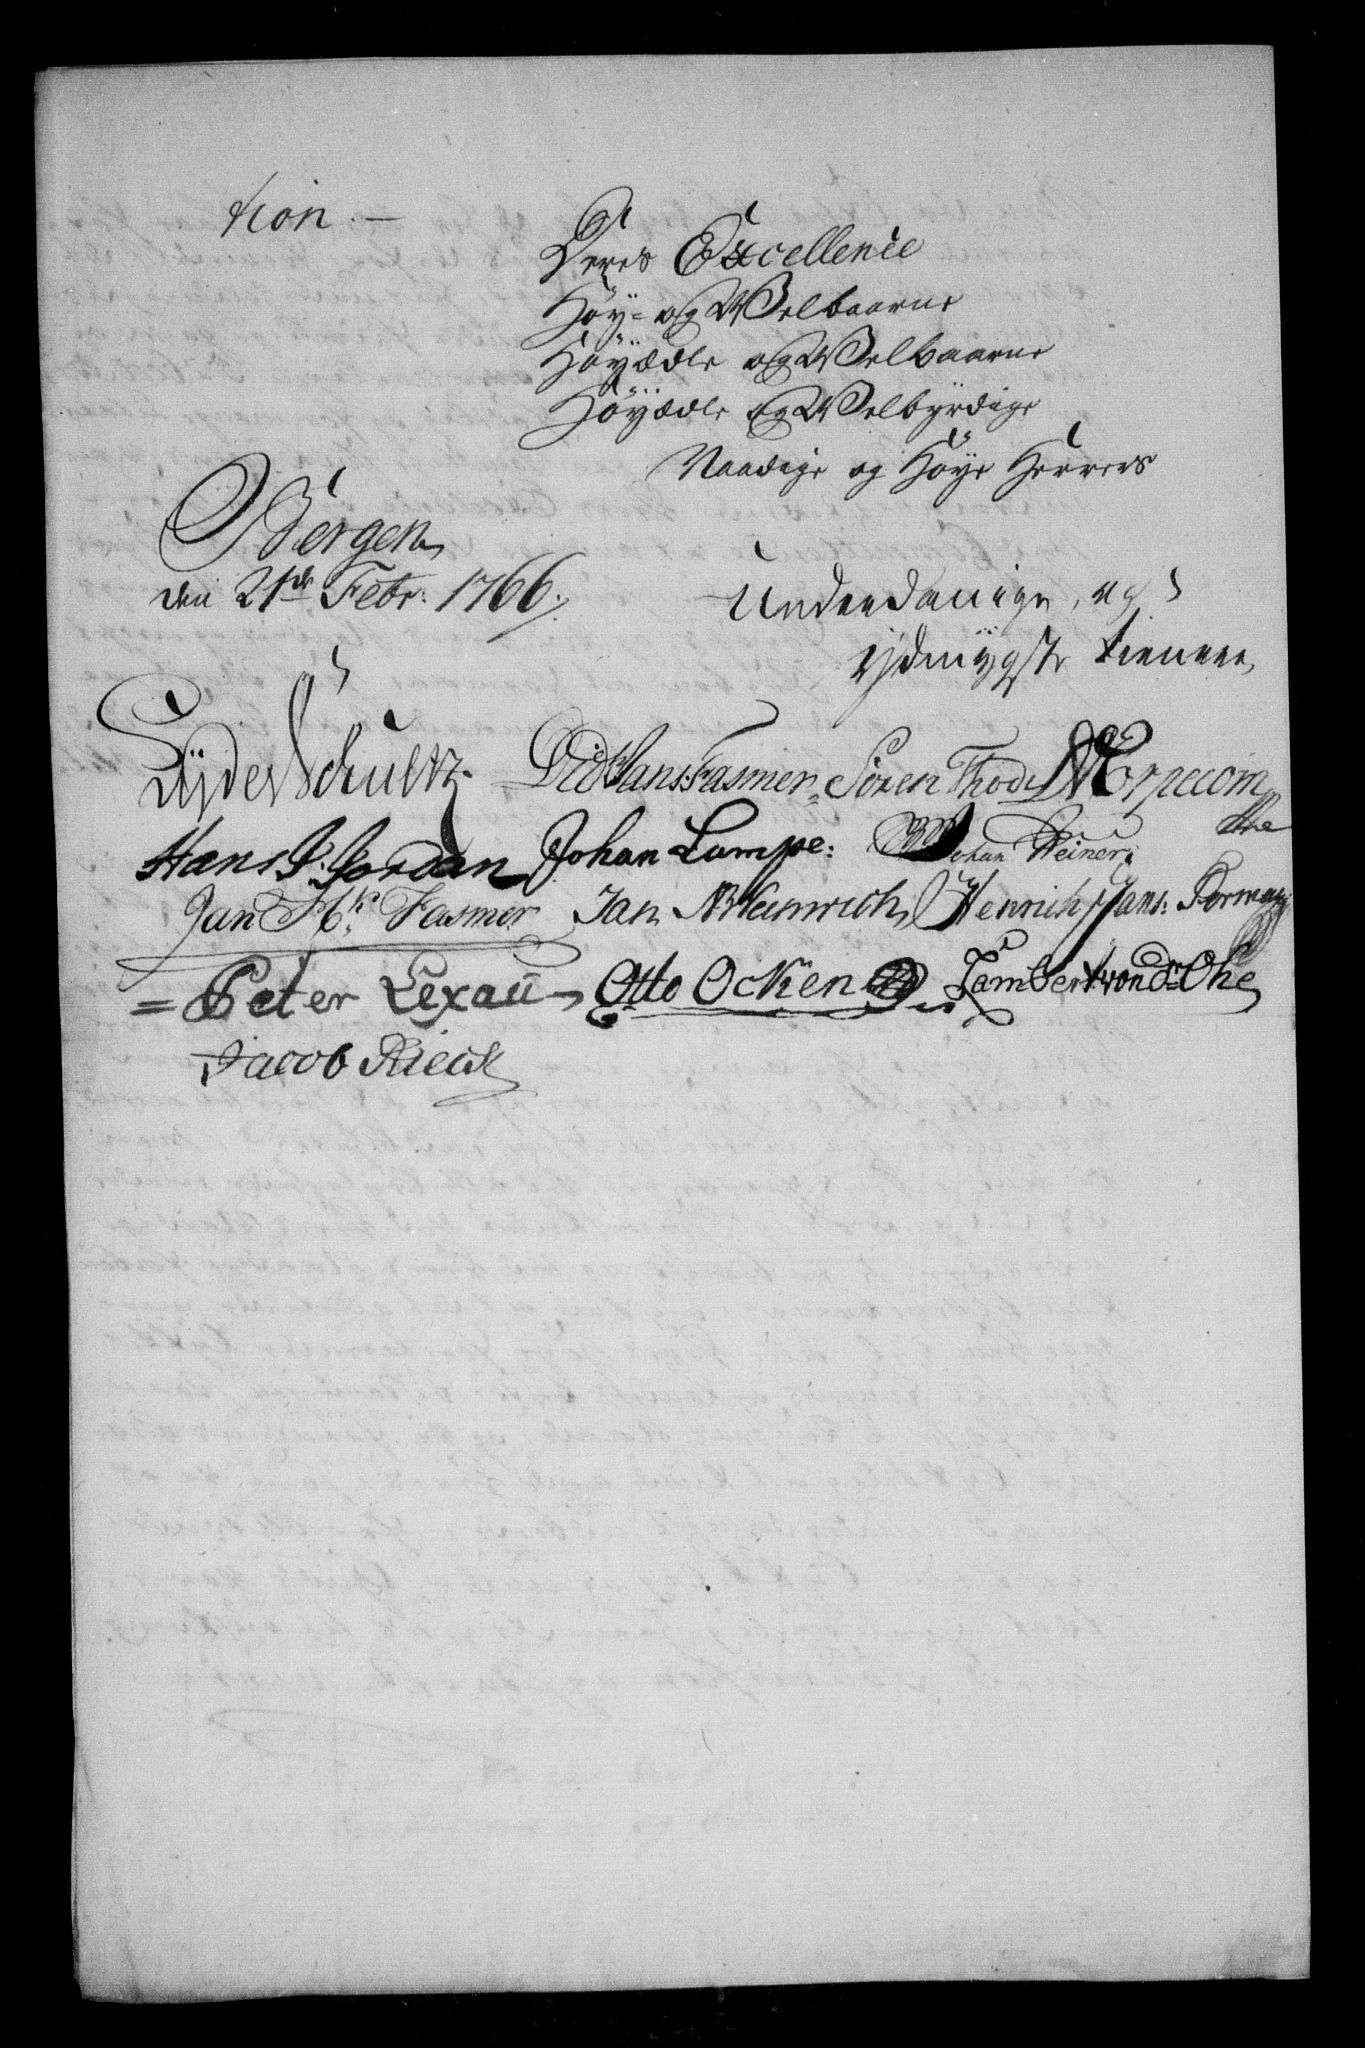 tion. —
Deres Excellence
Høy- og Welbaarne
Høyædle og Welbaarne
Høyædle og Welbyrdige
Naadige og Høye Herrers
Bergen
den 21de Febr. 1766.
Underdanige, og
ydmygste tienere
Lyder Schultz. Did Hans: Fasmer Sören Thode
Hans P. Jordan Johan Lampe: Johan Heiner
Jan Hr. Fasmer Jan Heinrich Henrich Hans: Forman
= Peter Lexau Otto Ocken Lambert von d: Ohe
Jacob Rieck